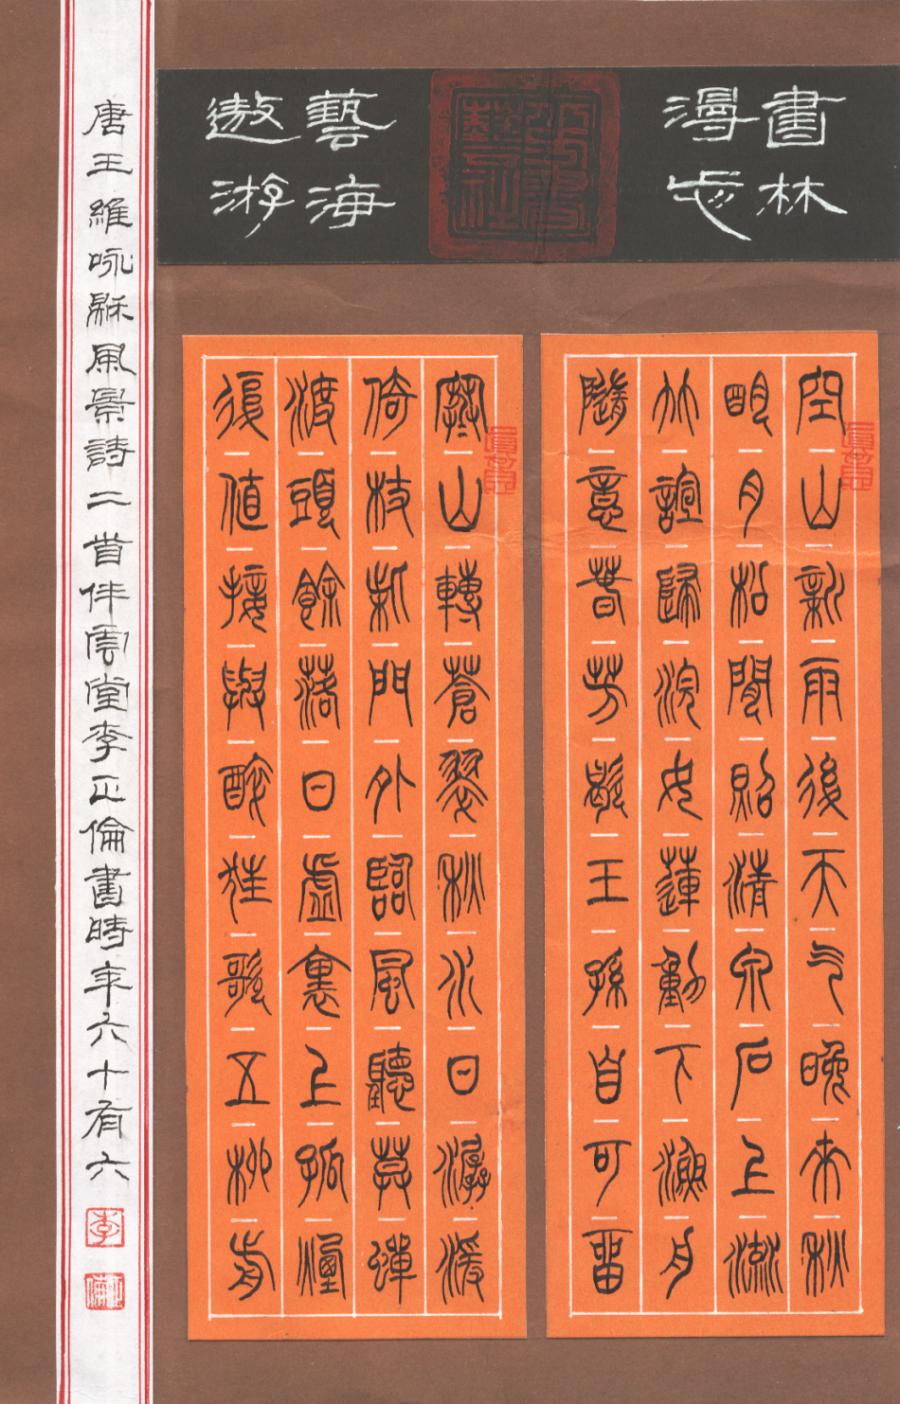 書林
漫步
藝海
遨游
空山新雨後天气晚來秋
明月松閒照清泉石上流
竹喧歸浣女蓮動下漁舟
隨意春芳歇王孫自可留
寒山轉蒼翠秋水日潺湲
倚杖柴門外臨風聽莫蟬
渡頭餘落日虛裏上孤煙
復值接輿醉狂歌五柳前
唐王維咏秋風景詩二首伴雲堂李正倫書時年六十有六
李